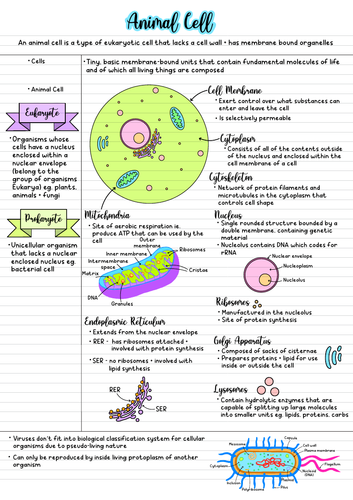 Animal Cell
An animal cell is a type of eukaryotic cell that lacks a cell wall + has membrane bound organelles
• Cells
• Tiny, basic membrane-bound units that contain fundamental molecules of life
and of which all living things are composed
• Animal Cell
Eukaryote
• Organisms whose
cells have a nucleus
enclosed within a
nuclear envelope
(belong to the
group of organisms
Eukarya) eg. plants,
animals + fungi
Prokaryote
• Unicellular organism
that lacks a nuclear
enclosed nucleus eg.
bacterial cell
Cell Membrane
• Exert control over what substances can
enter and leave the cell
• Is selectively-permeable
Cytoplasm
• Consists of all of the contents outside
of the nucleus and enclosed within the
cell membrane of a cell
Cytoskeleton
• Network of protein filaments and
microtubules in the cytoplasm that
controls cell shape
Mitochondria
• Site of aerobic respiration ie.
produce ATP that can be used by the
cell
Outer
membrane
Inner membrane
Intermembrane
space
Matrix
DNA
Granules
Ribosomes
Cristae
Nucleus
• Single rounded structure bounded by a
double membrane, containing genetic
material
• Nucleolus contains DNA which codes for
rRNA
Nuclear envelope
Nucleoplasm
Nucleolus
Ribosomes
• Manufactured in the nucleolus
• Site of protein synthesis
Endoplasmic Reticulum
• Extends from the nuclear envelope
• RER - has ribosomes attached +
involved with protein synthesis
• SER - no ribosomes + involved with
lipid synthesis
RER
SER
Golgi Apparatus
• Composed of sacks of cisternae
• Prepares proteins + lipids for use
inside or outside the cell
Lysosomes
• Contain hydrolytic enzymes that are
capable of splitting up large molecules
into smaller units eg. lipids, proteins, carbs
• Viruses don't fit into biological classification system for cellular
organisms due to pseudo-living nature
• Can only be reproduced by inside living protoplasm of another
organism
Capsule
Mesosome
Cell wall
Plasma membrane
Cytoplasm
Flagellum
Nucleoid
(DNA)
Inclusion
Polyribosome
Pili